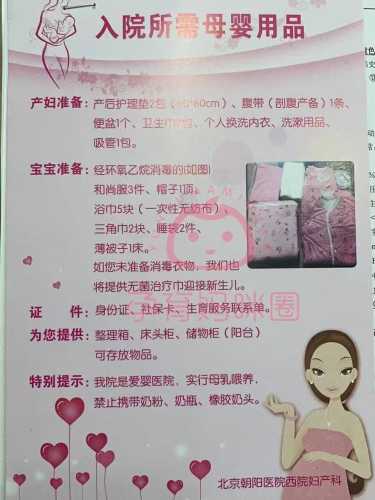 入院所需母婴用品
产妇准备：产后护理垫2包（60*60cm）、腹带（剖腹产备）1条、
便盆1个、卫生巾2包、个人换洗内衣、洗漱用品、
吸管1包。
宝宝准备：经环氧乙烷消毒的(如图)
和尚服3件、帽子1顶、
浴巾5块（一次性无纺布）、
三角巾2块、睡袋2件、
薄被子1床。
如您未准备消毒衣物，我们也
将提供无菌治疗巾迎接新生儿。
证　件：身份证、社保卡、生育服务联系单。
为您提供：整理箱、床头柜、储物柜（阳台）
可存放物品。
特别提示：我院是爱婴医院，实行母乳喂养，
禁止携带奶粉、奶瓶、橡胶奶头。
北京朝阳医院西院妇产科
孕育妈咪圈